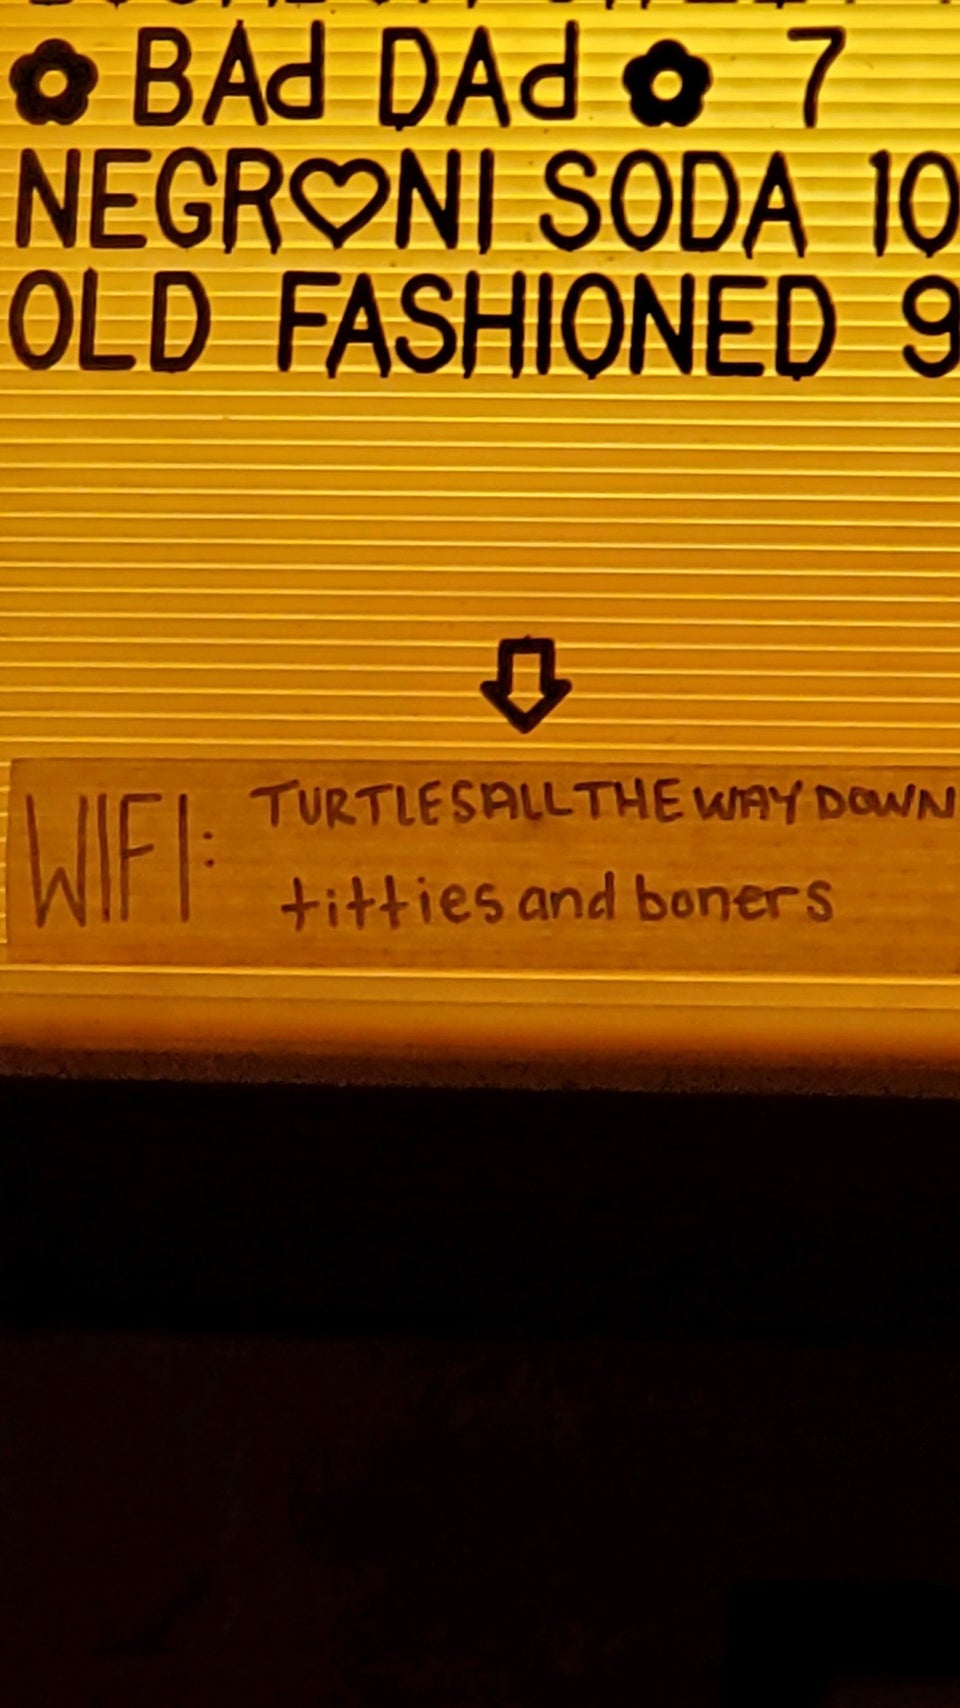 BAd DAd 7
NEGR♡NI SODA 10
OLD FASHIONED 9
WIFI: TURTLESALLTHEWAYDOWN
tittiesandboners